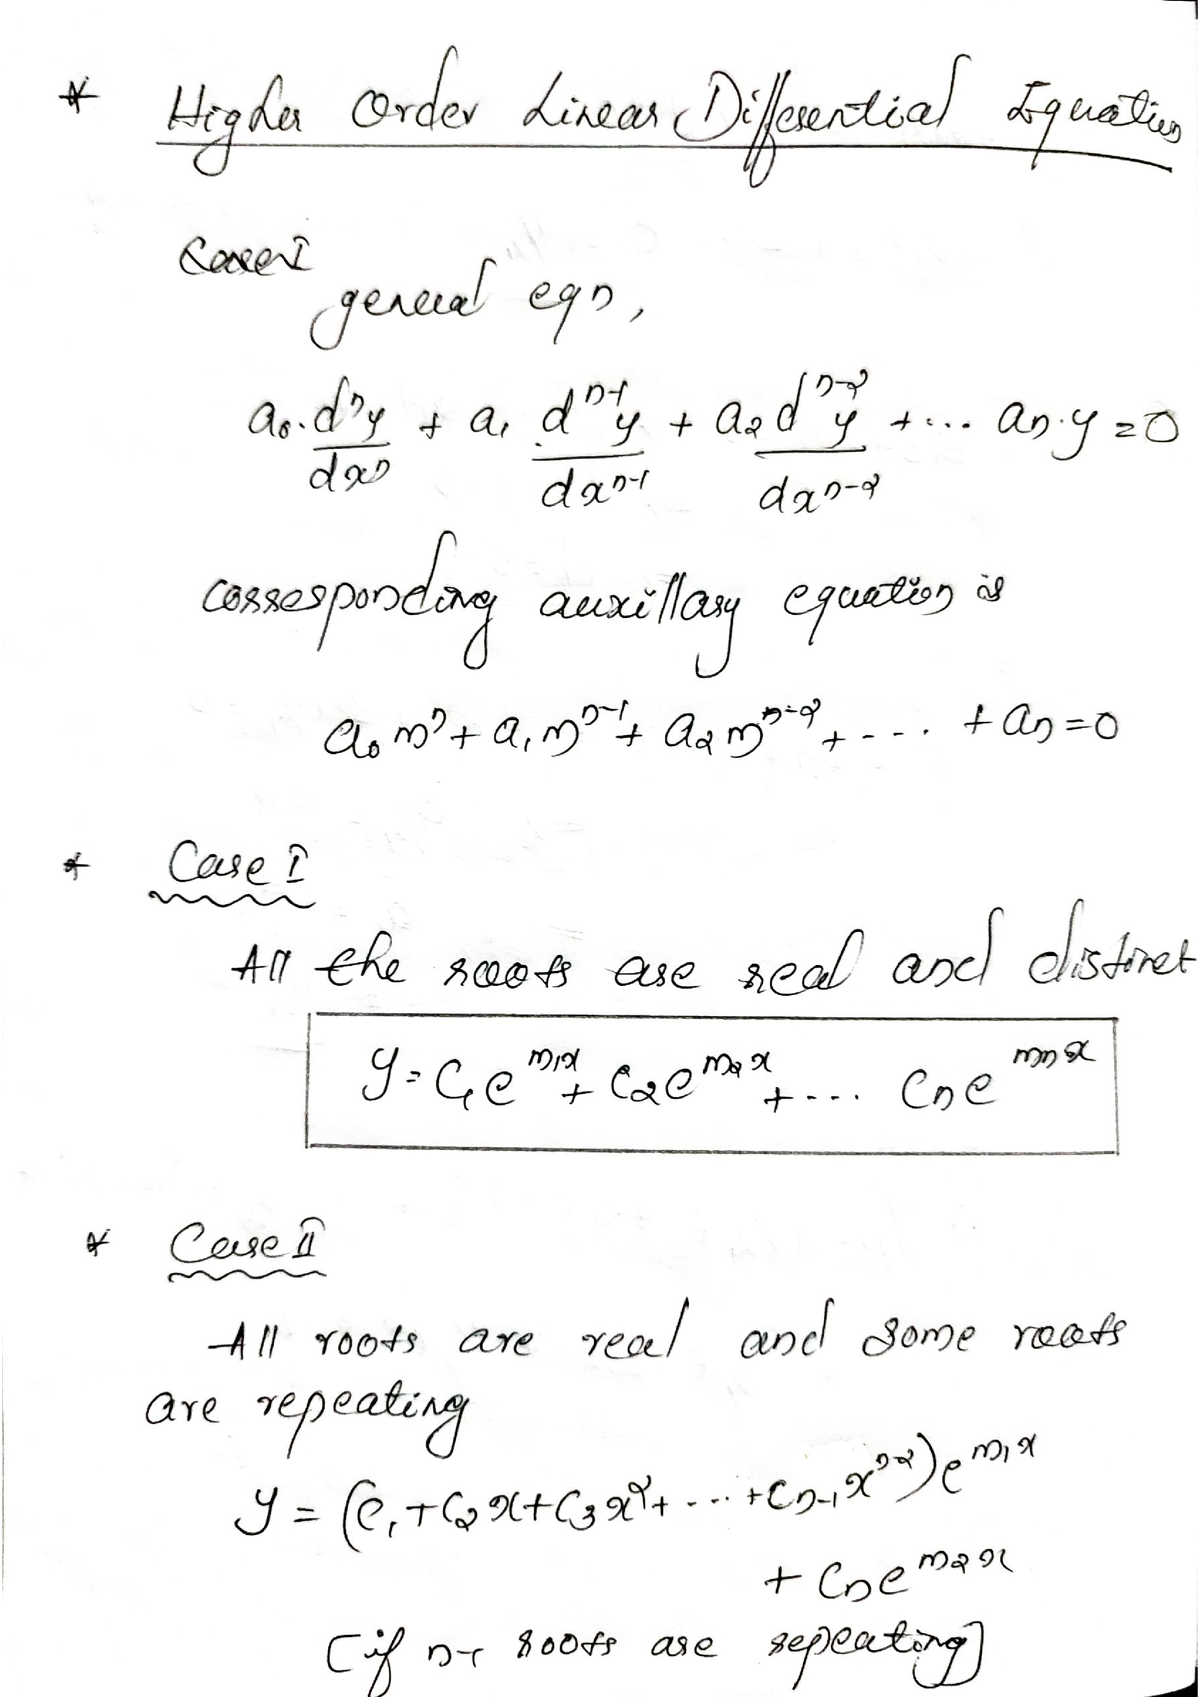 * Higher Order Linear Differential Equation
Case I
general eqn,
a₀.dⁿy/dxⁿ + a₁ dⁿ⁻¹y/dxⁿ⁻¹ + a₂ dⁿ⁻²y/dxⁿ⁻² + ... aₙ.y = 0
corresponding auxillary equation is
a₀mⁿ + a₁mⁿ⁻¹ + a₂mⁿ⁻² + .... + aₙ = 0
* Case I
All the roots are real and distinct
y = C₁e^m₁x + C₂e^m₂x + .... Cₙe^mₙx
* Case II
All roots are real and some roots
are repeating
y = (C₁ + C₂x + C₃x² + .... + Cₙ₋₁xⁿ⁻²)e^m₁x
+ Cₙe^m₂x
[if n-1 roots are repeating]